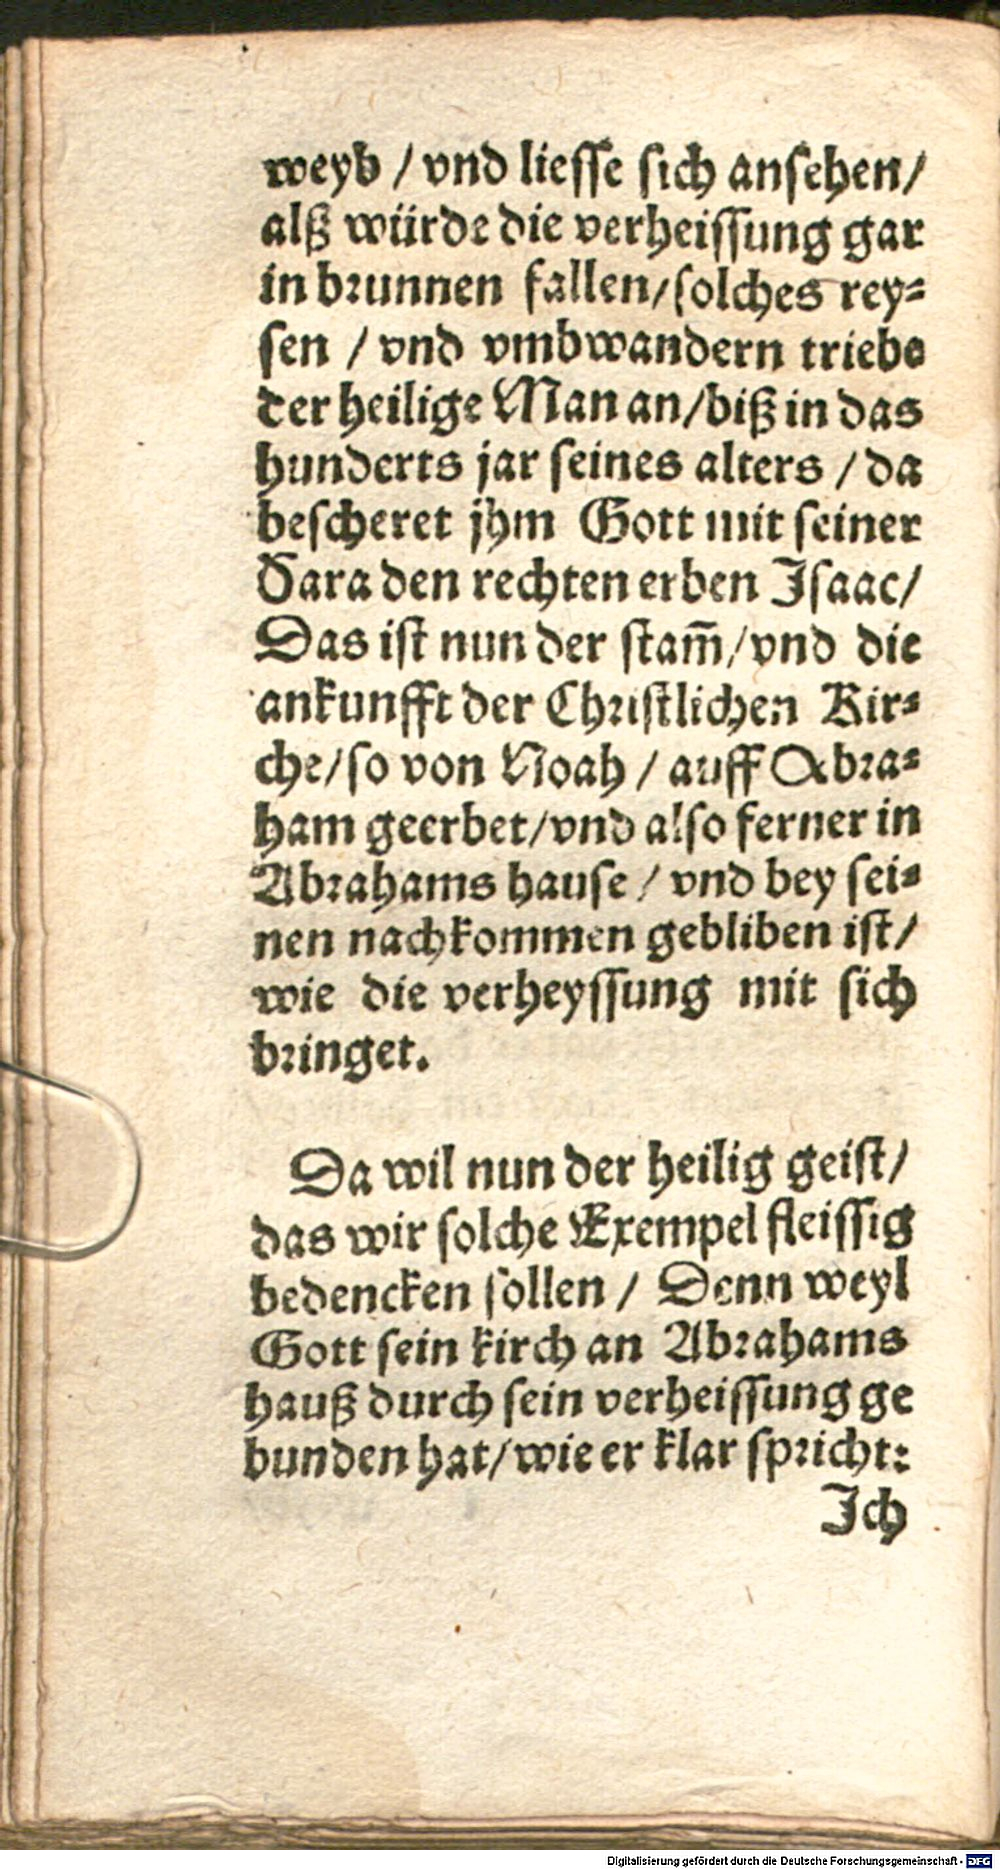 weyb / vnd liesse sich ansehen/
alß würde die verheissung gar
in brunnen fallen/ solches rey⸗
sen / vnd vmbwandern triebe
der heilige Man an/ biß in das
hunderts jar seines alters / da
bescheret jhm Gott mit seiner
Sara den rechten erben Isaac/
Das ist nun der stam̃/ vnd die
ankunfft der Christlichen Kir⸗
che/ so von Noah / auff Abra⸗
ham geerbet/ vnd also ferner in
Abrahams hause / vnd bey sei⸗
nen nachkommen gebliben ist/
wie die verheyssung mit sich
bringet.
Da wil nun der heilig geist/
das wir solche Exempel fleissig
bedencken sollen / Denn weyl
Gott sein kirch an Abrahams
hauß durch sein verheissung ge
bunden hat/ wie er klar spricht:
Ich
Digitalisierung gefördert durch die Deutsche Forschungsgemeinschaft - DFG